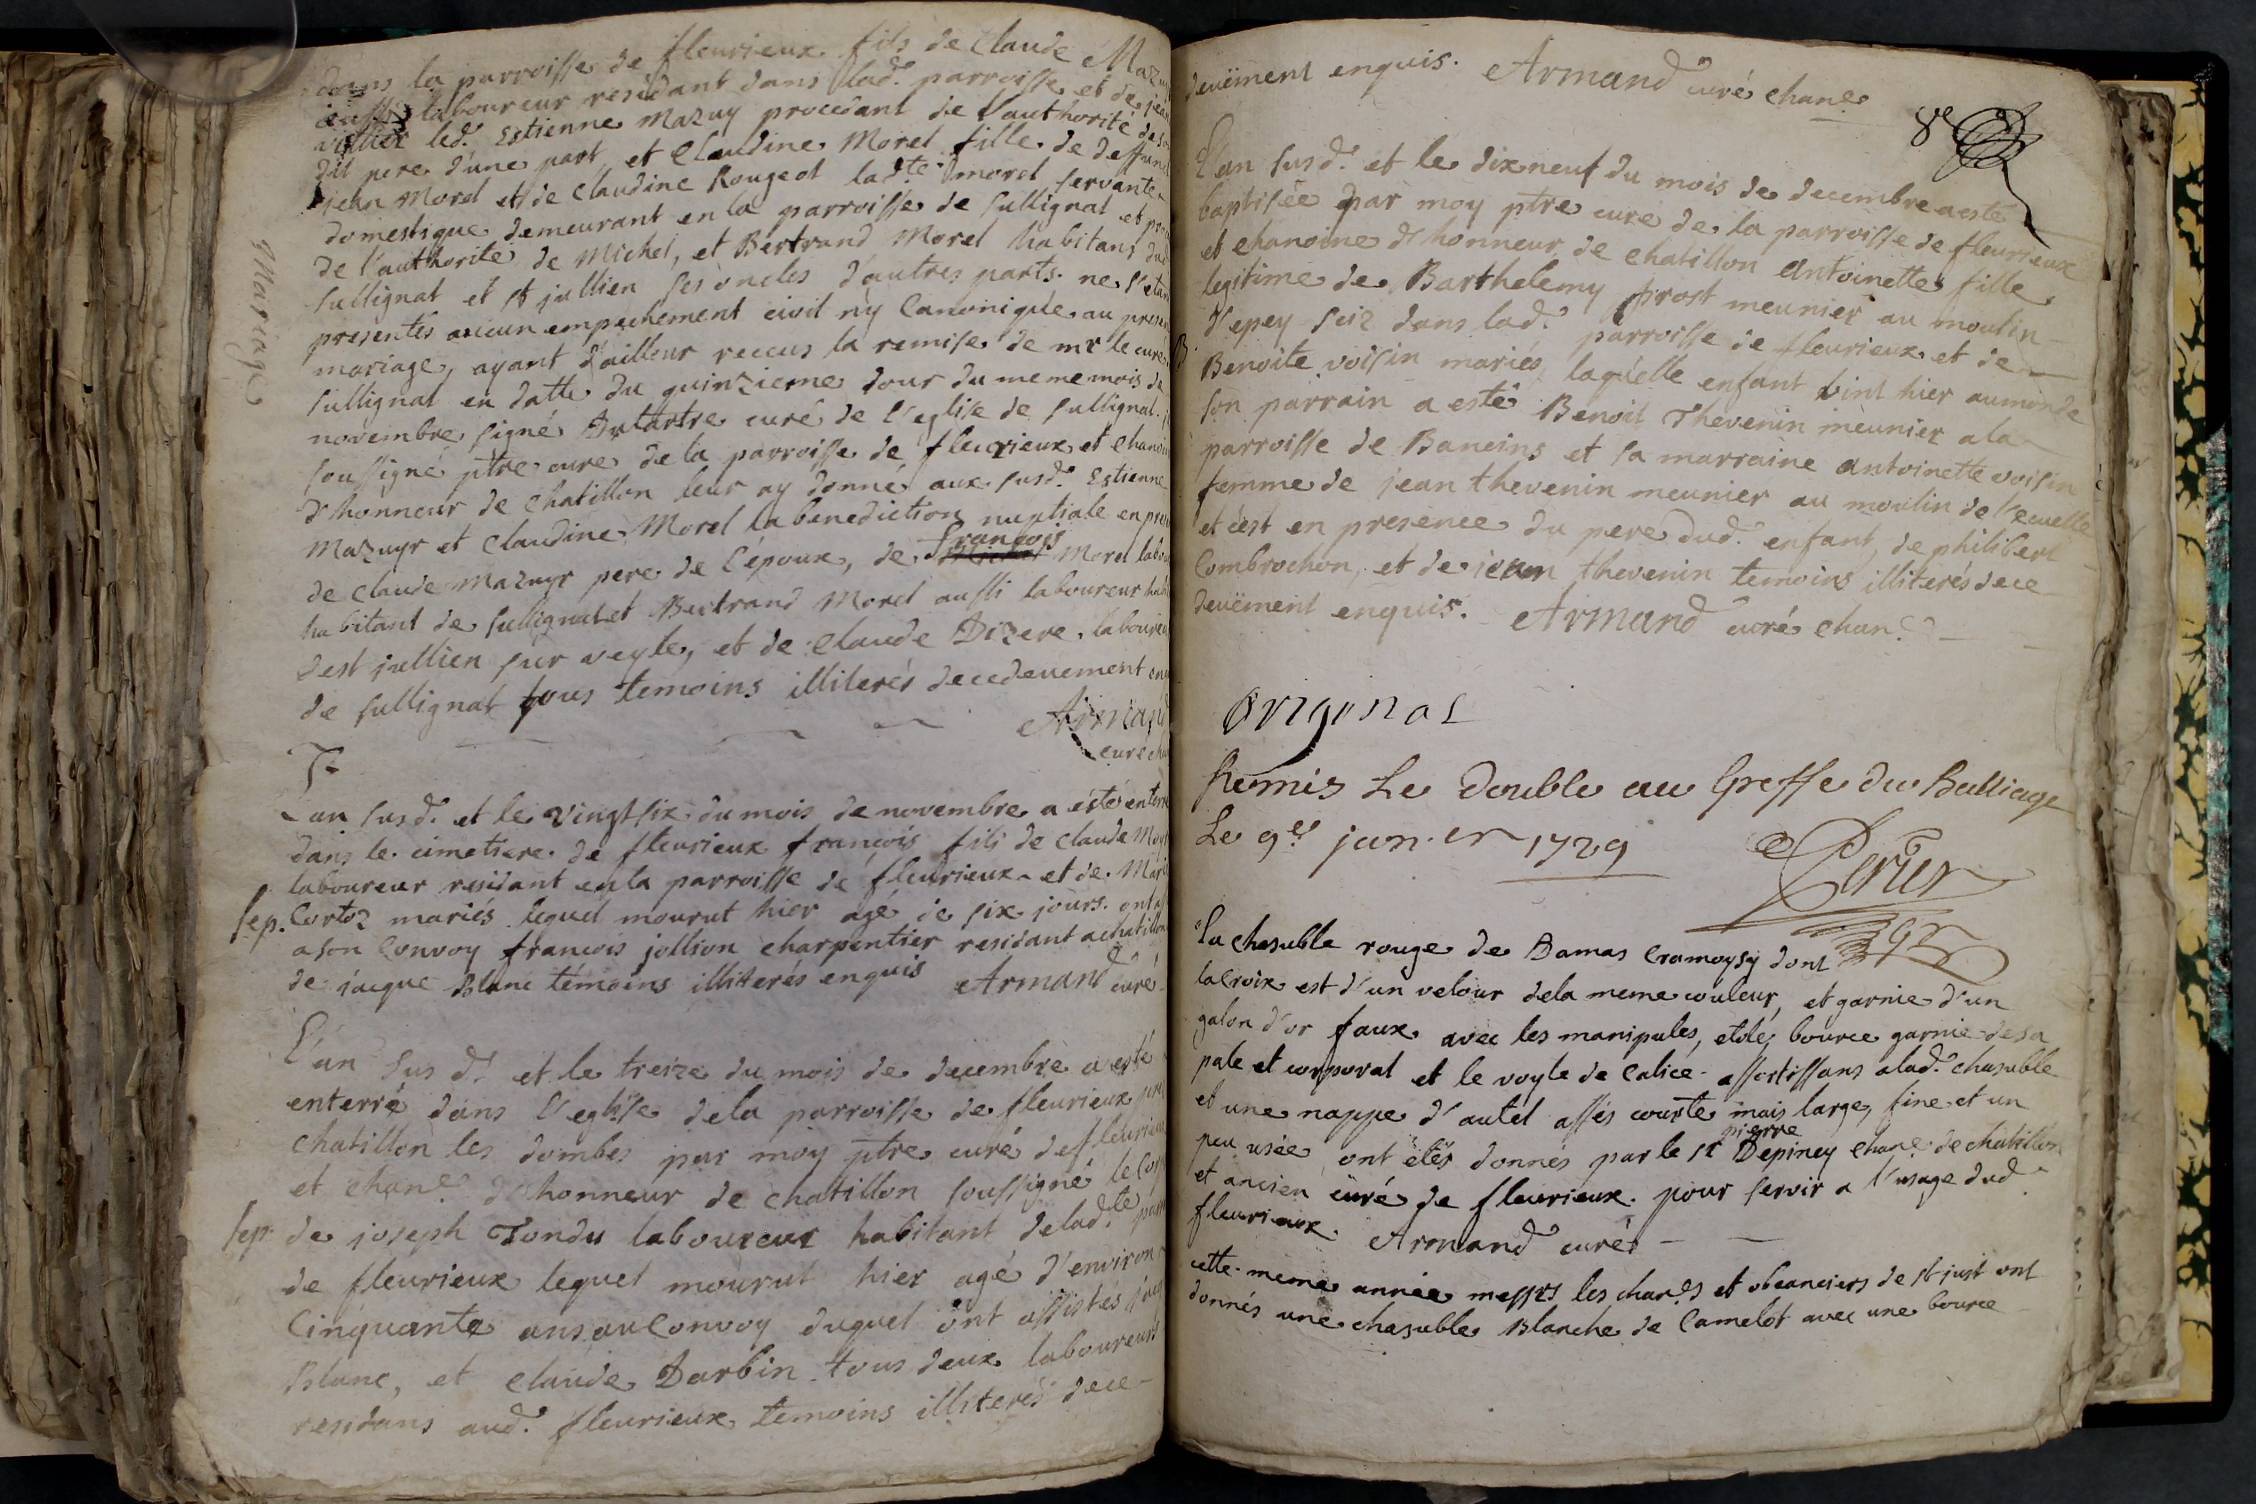 dans la parroisse de fleurieux fils de Claude Mazuy
aussi laboureur residant dans lad.e parroisse et de jean
led.t Estienne Mazuy procedant de l'authorité de son
dit pere d'une part, et Claudine Morel fille de deffunct
jean Morel et de Claudine Rougeot lad.te morel servante
domestique demeurant en la parroisse de sullignat et pro
de l'authorité de Michel, et Bertrand Morel habitans dud
sullignat et st jullien ses oncles d'autres parts. ne s'etan
presentés aucun empechement civil n'y Canonique au presen
mariage, ayant d'ailleur receus la remise de mr le cure
Mariage
sullignat en datte du quinzieme jour du meme mois de
novembre signé Dutartre curé de l'eglise de sullignat. j
soussigné ptre cure de la parroisse de fleurieux et chanoi
d'honneur de chatillon leur ay donné aux susd.s Estienne
Mazuyr et Claudine Morel la benediction nuptiale en pres
françois
de Claude Mazuyr pere de l'époux, de Morel labou
habitant de sullignat et Bertrand Morel aussi laboureur hab
de st jullien sur veyle, et de Claude Dizere laboureu
de sullignat tous temoins illiterés de ce deuement enq
Armand
cure cha
L'an susd.t et le vingt six du mois de novembre a esté enterré
dans le cimetiere de fleurieux françois fils de Claude Moy
laboureur residant en la parroisse de fleurieux et de Marie
sep. Cortoz mariés lequel mourut hier agé de six jours. ont as
a son Convoy francois jollion charpentier residant a chatillon
de jacque Blanc témoins illiterés enquis Armand curé
L'an sus d.t et le treize du mois de decembre a esté
enterré dans l'eglise de la parroisse de fleurieux pres
chatillon les dombes par moy ptre curé de fleurieux
et chan.e d'honneur de chatillon soussigné le Corp
sep. de joseph Tondu laboureur habitant de lad.te parr
de fleurieux lequel mourut hier agé d'environ
Cinquante ans au Convoy duquel ont assistés jacq
Blanc, et Claude Darbin tous deux laboureurs
residans aud.t fleurieux temoins illiterés de ce
deuëment enquis. Armand curé chan.e
8e
L'an susd.t et le dix neuf du mois de decembre a esté
baptisée par moy ptre cure de la parroisse de fleurieux
et chanoine d'honneur de chatillon Antoinette fille
legitime de Barthelemy prost meunier au moulin
d'epey seiz dans lad.e parroisse de fleurieux et de
B. Benoite voisin mariés, laquelle enfant vint hier au monde
son parrain a esté Benoit Thevenin meunier a la
parroisse de Baneins et sa marraine Antoinette voisin
femme de jean thevenin meunier au moulin de l'ecuelle
et c'est en presence du pere dud.t enfant, de philibert
Combrochon, et de jean thevenin temoins illiterés de ce
deuëment enquis. Armand curé chan.e
Original
Remis Le Double au Greffe du Balliage
Le 9er janv.er 1729
Perier
La chasuble rouge de Damas Cramoysy dont
la croix est d'un velour de la meme couleur, et garnie d'un
galon d'or faux avec les manipules, etole, bource garnie de sa
pale et corporal et le voyle de calice assortissans a lad.e chasuble
et une nappe d'autel assés courte mais large, fine et un
pierre
peu usée ont étés donnés par le sr Depiney chan.e de chatillon
et ancien curé de fleurieux pour servir a l'usage dud.
fleurieux. Armand curé
cette meme année messrs les chan.es et obeanciers de st just ont
donnés une chasuble Blanche de Camelot avec une bource